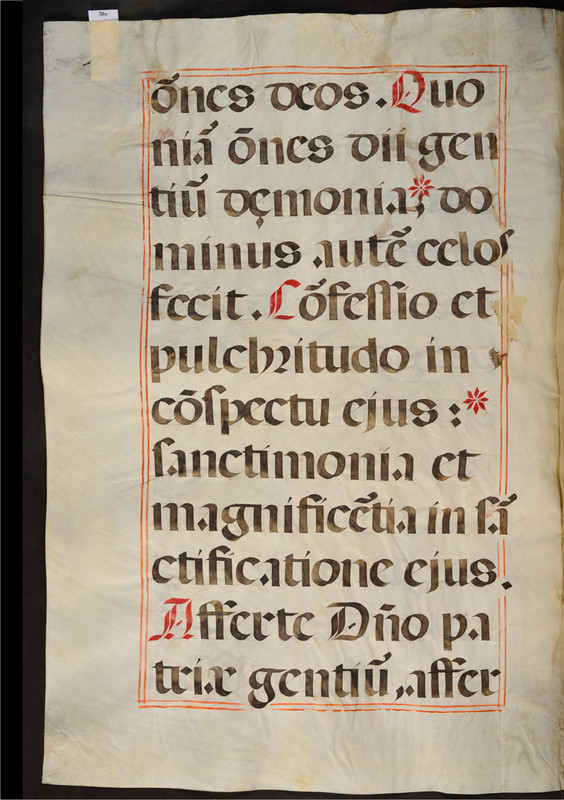 38v
õnes deos. Quo
niã õnes dii gen
tiũ dęmonia, * do
minus autẽ celos
fecit. Cõfessio et
pulchritudo in
cõspectu ejus : *
sanctimonia et
magnificẽtia in sã
ctificatione ejus.
Afferte Dño pa
triæ gentiũ, affer